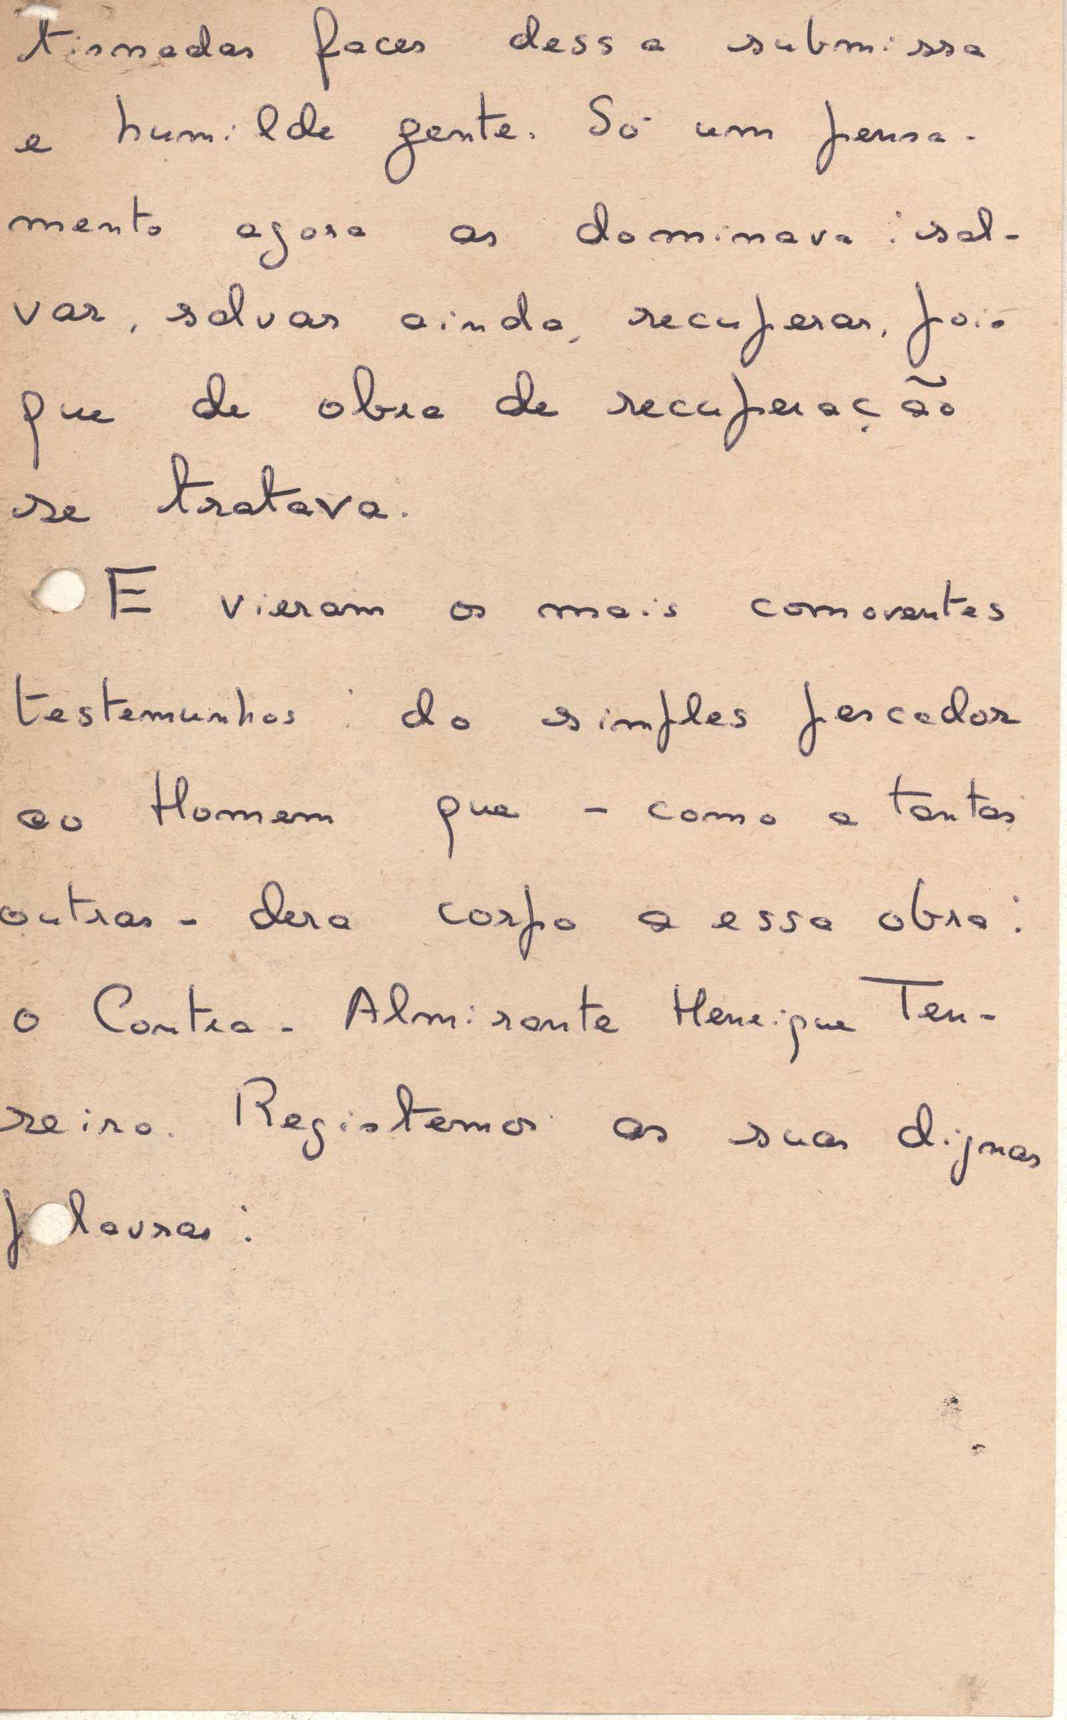 tisnadas faces dessa submissa
e humilde gente. Só um pensa-
mento agora as dominava: sal-
var, salvar ainda, recuperar, pois
que de obra de recuperação
se tratava.
E vieram os mais comoventes
testemunhos: do simples pescador
ao Homem que - como a tantas
outras - dera corpo a essa obra:
o Contra-Almirante Henrique Ten-
reiro. Registemos as suas dignas
palavras: